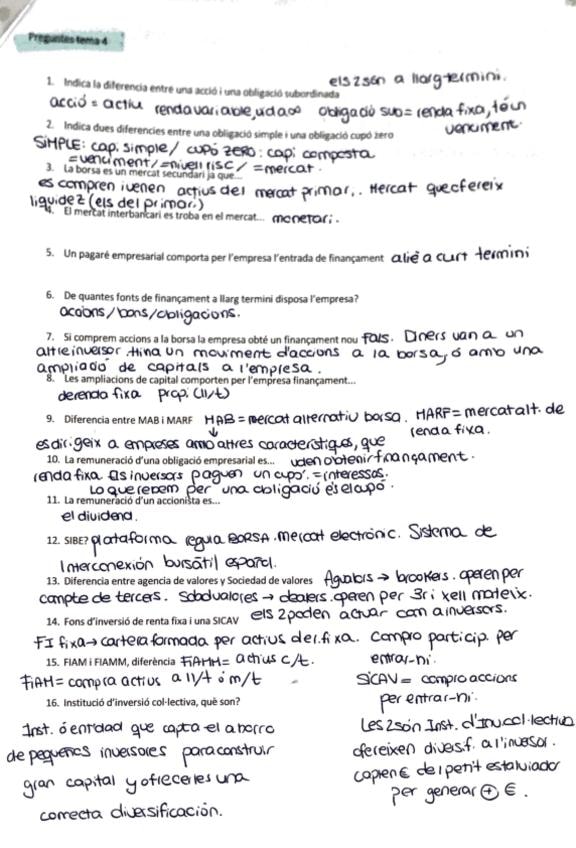 Preguntes tema 4
els 2 són a llarg termini.
1. Indica la diferencia entre una acció i una obligació subordinada
acció = actiu renda variable, vida ∞ obligació sub = renda fixa, té un venciment.
2. Indica dues diferencies entre una obligació simple i una obligació cupó zero
SIMPLE: cap. simple / CUPÓ ZERO: capi composta
= venciment / = nivell risc / = mercat.
3. La borsa es un mercat secundari ja que...
es compren i venen actius del mercat primari. Mercat que ofereix
liquidez (els del primari)
4. El mercat interbancari es troba en el mercat... monetari.
5. Un pagaré empresarial comporta per l'empresa l'entrada de finançament aliè a curt termini
6. De quantes fonts de finançament a llarg termini disposa l'empresa?
accions/bons/obligacions.
7. Si comprem accions a la borsa la empresa obté un finançament nou fals. Diners van a un
altre inversor. Hi ha un moviment d'accions a la borsa, ó amb una
ampliació de capitals a l'empresa.
8. Les ampliacions de capital comporten per l'empresa finançament...
de renda fixa propi (ll/t)
9. Diferencia entre MAB i MARF MAB = mercat alternatiu borsa. MARF = mercat alt. de
renda fixa.
es dirigeix a empreses amb altres característiques, que
10. La remuneració d'una obligació empresarial es... volen obtenir finançament.
renda fixa els inversors paguen un cupó. = interessos.
Lo que rebem per una obligació és el cupó.
11. La remuneració d'un accionista es...
el dividend.
12. SIBE? plataforma regula BORSA. mercat electrònic. Sistema de
Interconexión bursátil español.
13. Diferencia entre agencia de valores y Sociedad de valores Ag valors → brookers. operen per
compte de tercers. Sdad valores → dealers. operen per 3r i xell mateix.
14. Fons d'inversió de renta fixa i una SICAV els 2 poden actuar com a inversors.
FI fixa → cartera formada per actius de r. fixa. Compro particip. per
entrar-hi.
15. FIAM i FIAMM, diferència FIAMM = actius c/t.
FIAM = compra actius a ll/t ó m/t
SICAV = compro accions
per entrar-hi.
16. Institució d'inversió col·lectiva, què son?
Inst. ó entidad que capta el ahorro
de pequeños inversores para construir
gran capital y ofrecerles una
correcta diversificación.
Les 2 són Inst. d'Inv. col·lectiva
ofereixen diversf. a l'inversor.
copien € del petit estalviador
per generar ⊕ €.